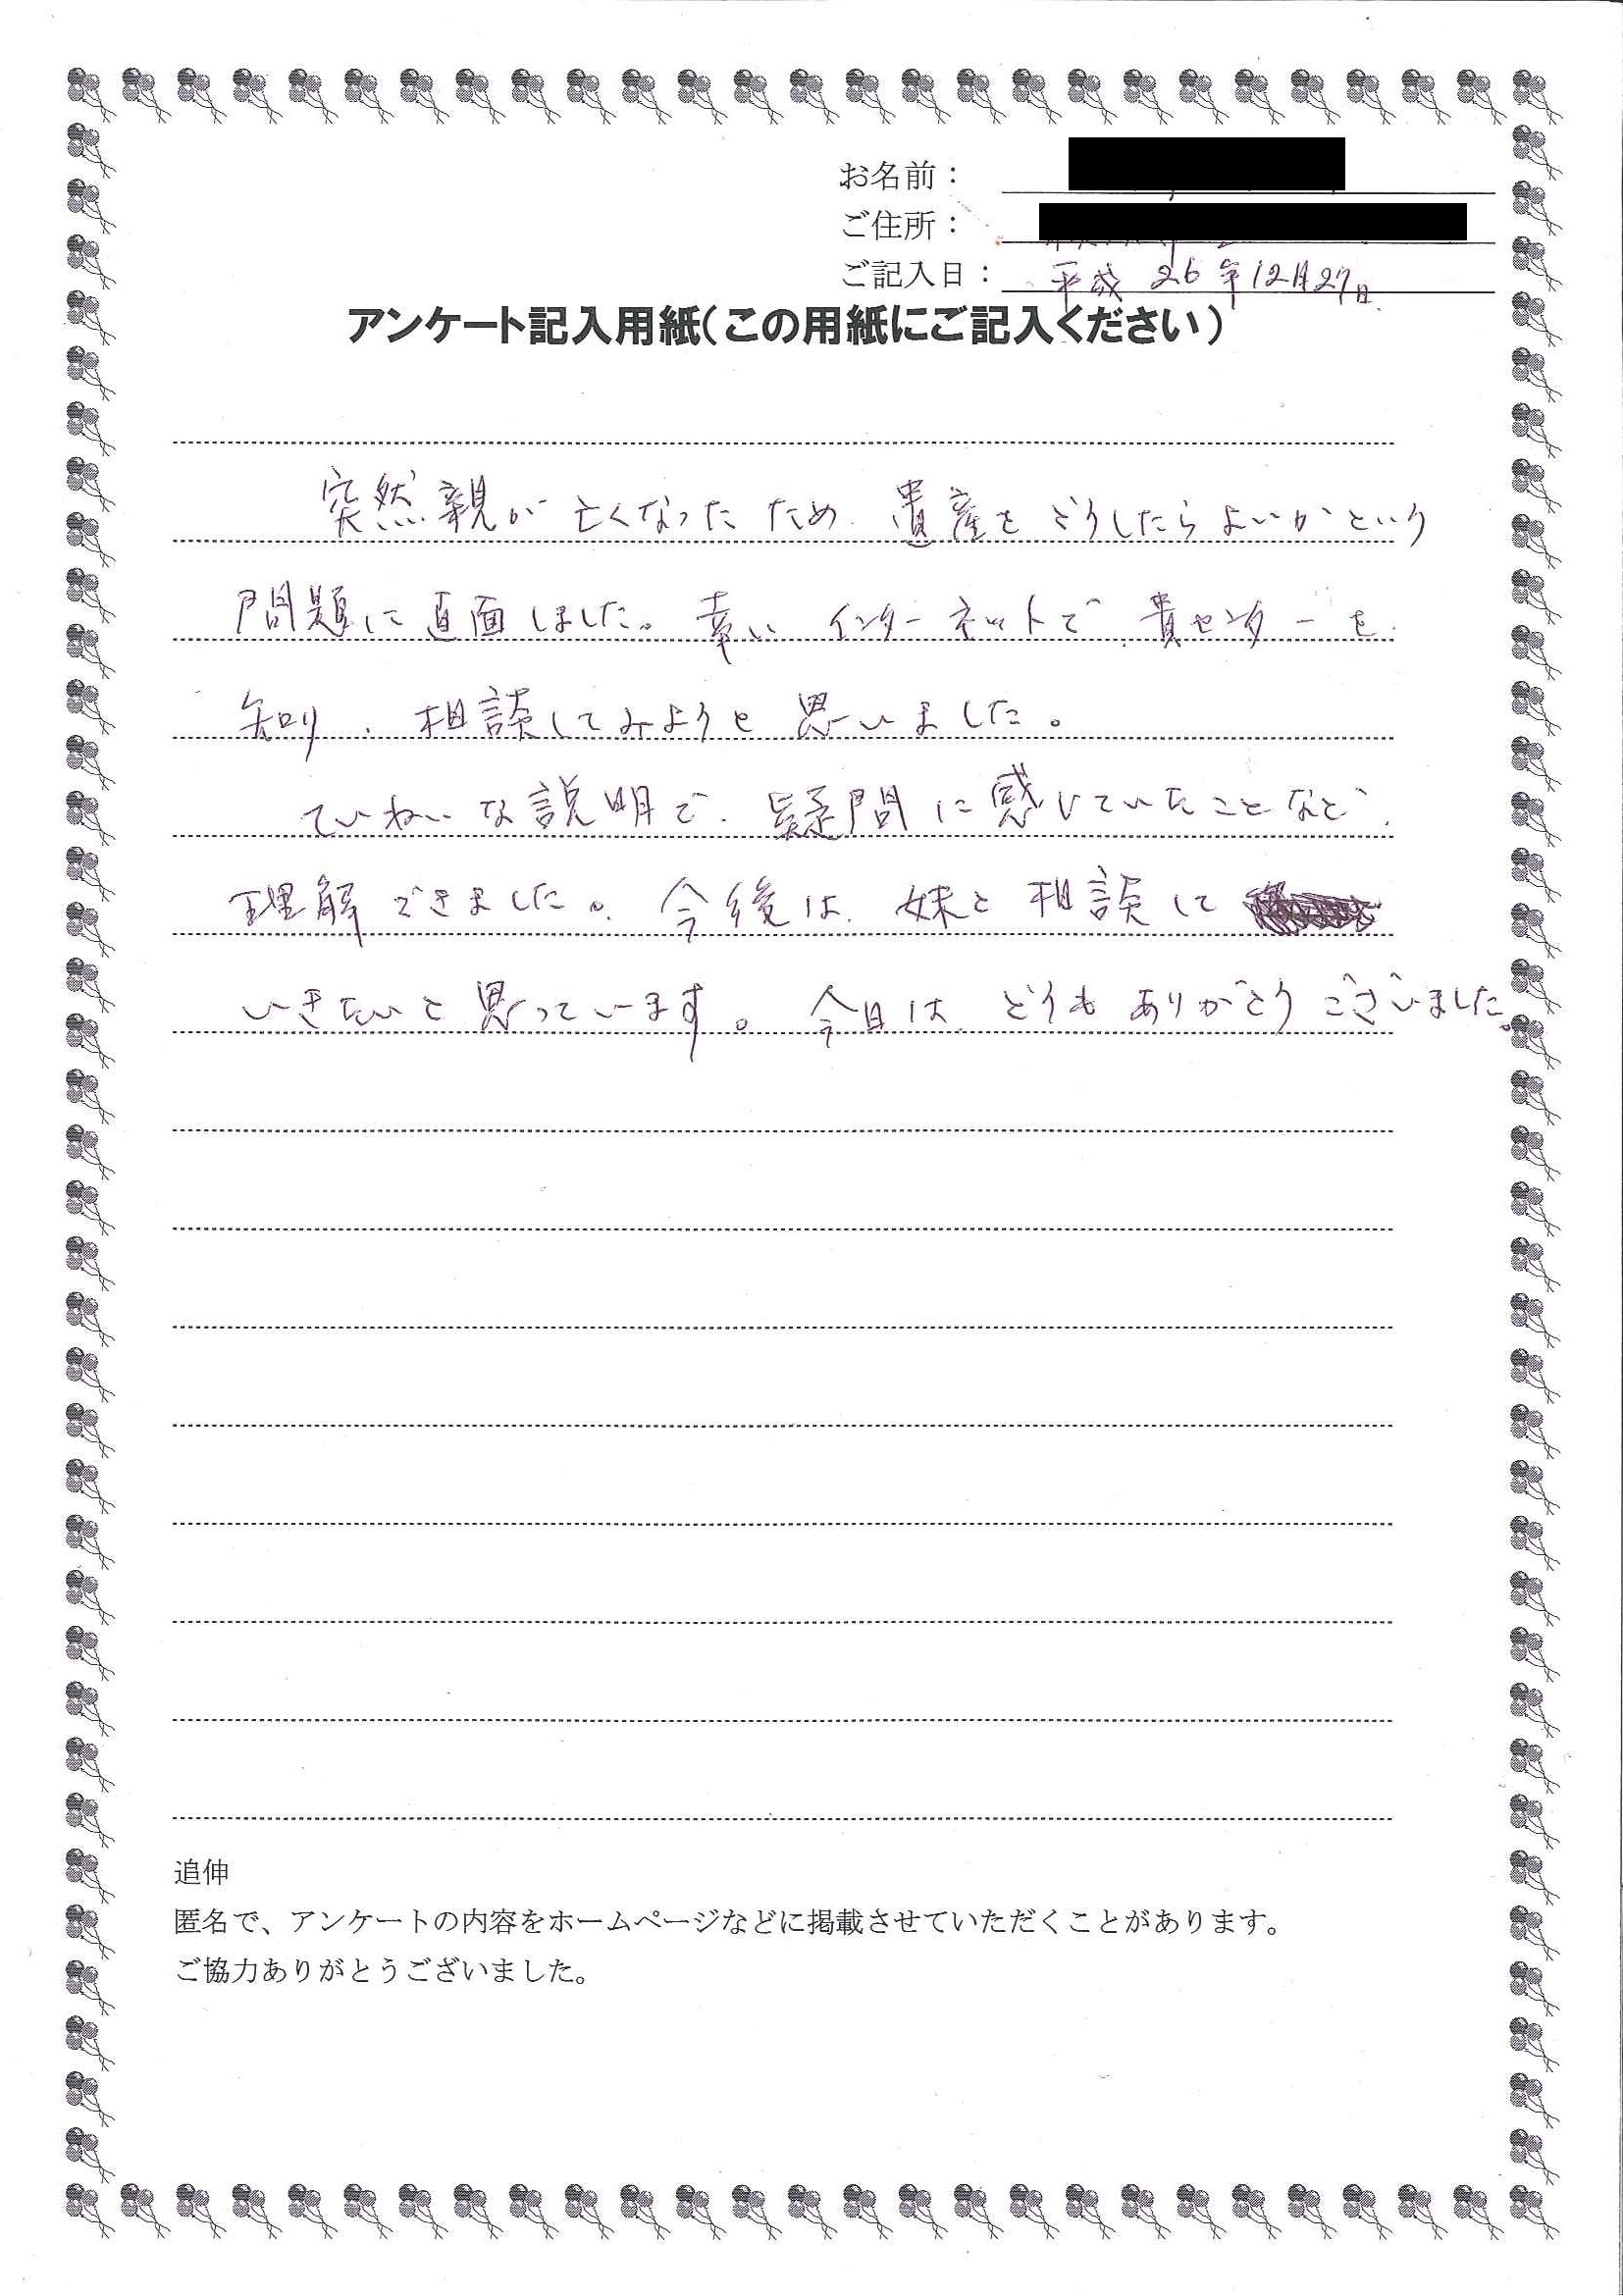 お名前：
ご住所：
ご記入日： 平成 26年12月27日
アンケート記入用紙（この用紙にご記入ください）
突然親が亡くなったため 遺産をどうしたらよいかという
問題に直面しました。幸い インターネットで 貴センターを
知り、相談してみようと思いました。
ていねいな説明で、疑問に感じていたことなど、
理解できました。今後は、妹と相談して
いきたいと思っています。今日は、どうもありがとうございました。
追伸
匿名で、アンケートの内容をホームページなどに掲載させていただくことがあります。
ご協力ありがとうございました。